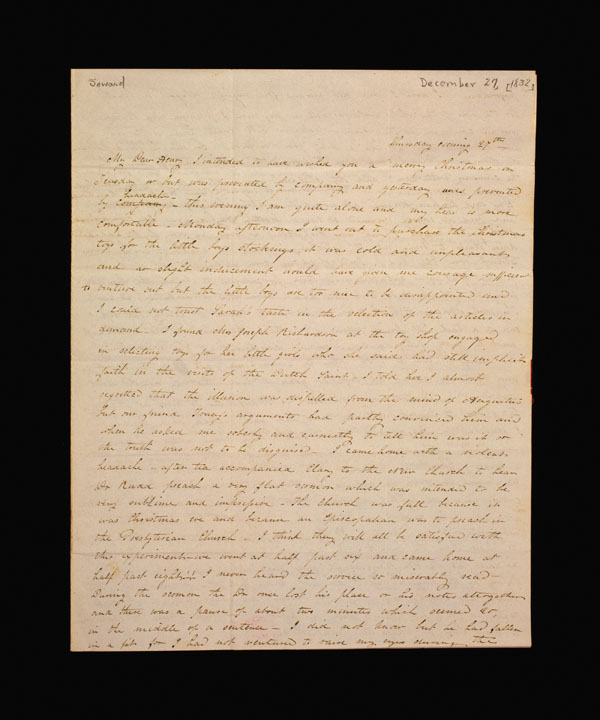 Seward
December 27 [1832]
Thursday evening 27th
My Dear Henry, I intended to have wished you a merry Christmas on
Tuesday but was prevented by company and yesterday was prevented
headache
by company - this evening I am quite alone and my head is more
comfortable - Monday afternoon I went out to purchase the Christmas
toys for the little boys stockings it was cold and unpleasant
and no slight inducement would have given me courage sufficient
to venture out but the little boys are too nice to be disappointed and
I could not trust Sarah's taste in the selection of the articles in
demand - I found Mrs Joseph Richardson at the toy shop engaged
in selecting toys for her little girls who she said had still implicit
faith in the visits of the Dutch Saint - I told her I almost
regretted that the illusion was dispelled from the mind of Augustus
but our friend Tracy's arguments had partly convinced him and
when he asked me soberly and earnestly to tell him was it so
the truth was not to be disguised - I came home with a violent
headache - after tea accompanied Clary to the New Church to hear
Dr Rudd preach a very flat sermon which was intended to be
very sublime and impressive - the Church was full because it
was Christmas eve and because an Episcopalian was to preach in
the Presbyterian Church - I think they will all be satisfied with
this experiment - we went at half past six and came home at
half past eight!! I never heard the service so miserably read -
During the sermon the Dr once lost his place or his notes altogether
and there was a pause of about two minutes which seemed 20,
in the middle of a sentence - I did not know but he had fallen
in a fit for I had not ventured to raise my eyes during the